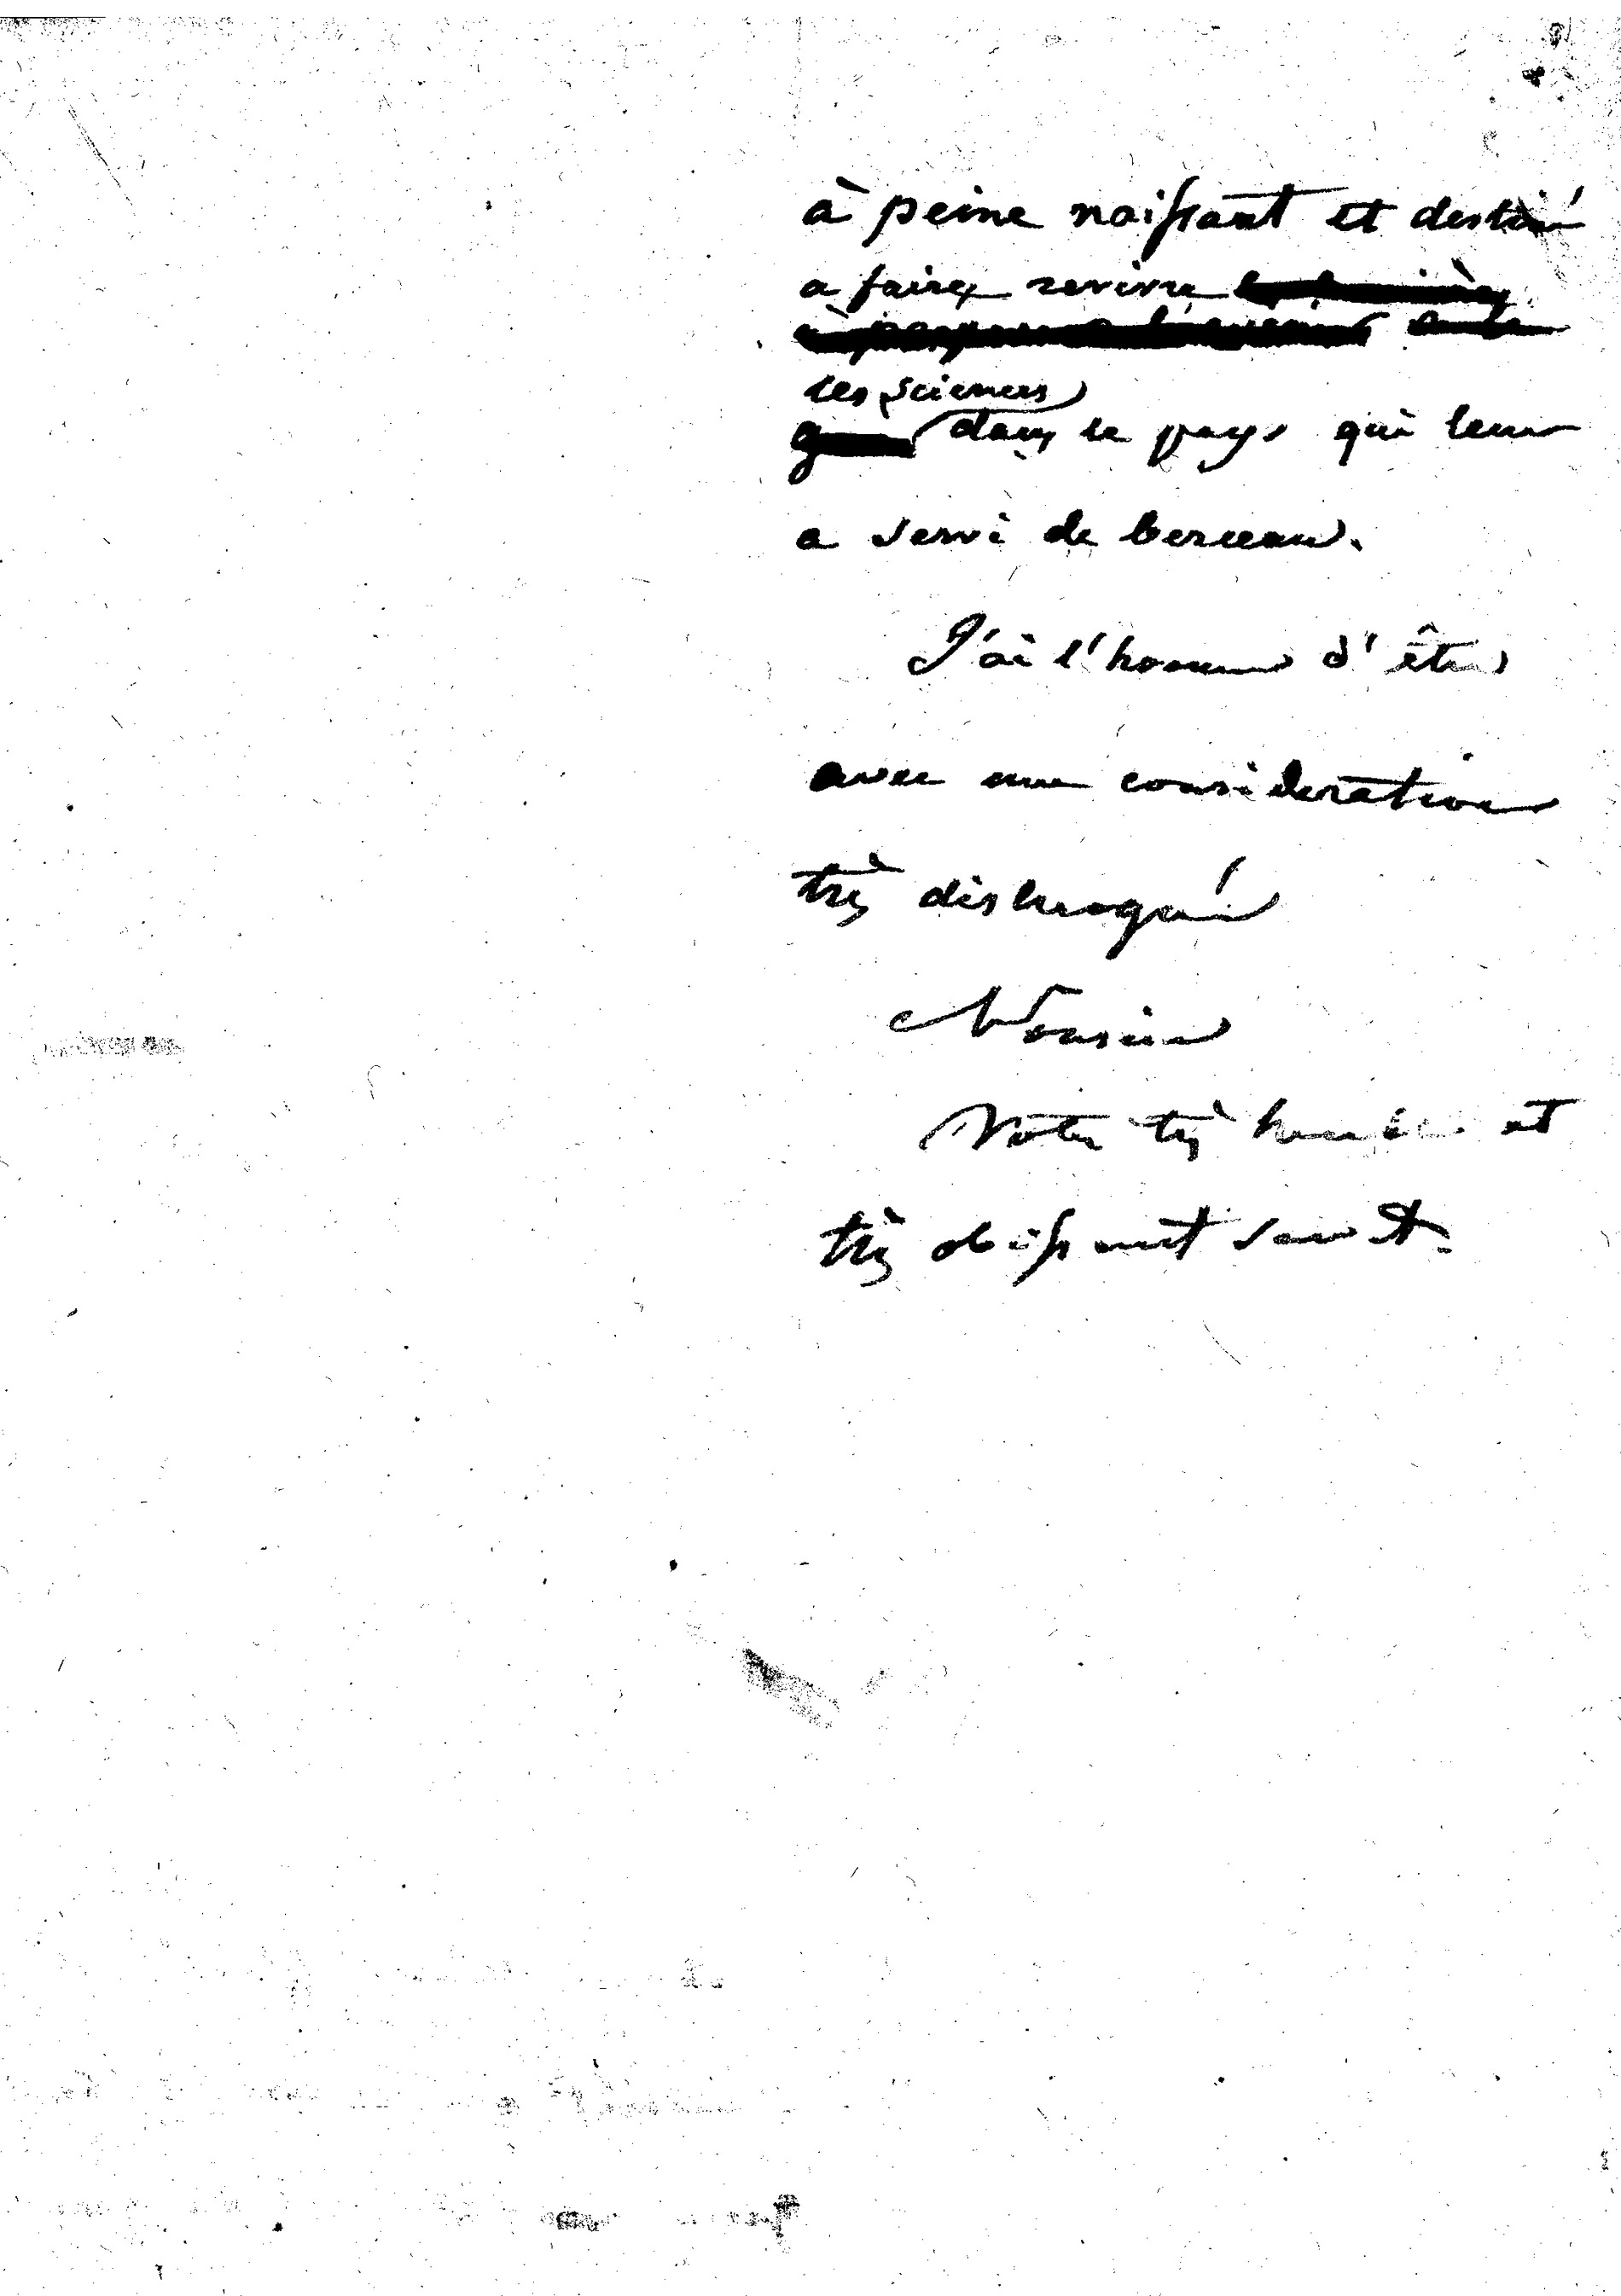 à peine naissant et destiné
a faire revivre
les sciences
dans le pays qui leur
a servi de berceau.
J'ai l'honneur d'être
avec une consideration
très distingué
Monsieur
Votre très humble et
très obeissant servt.